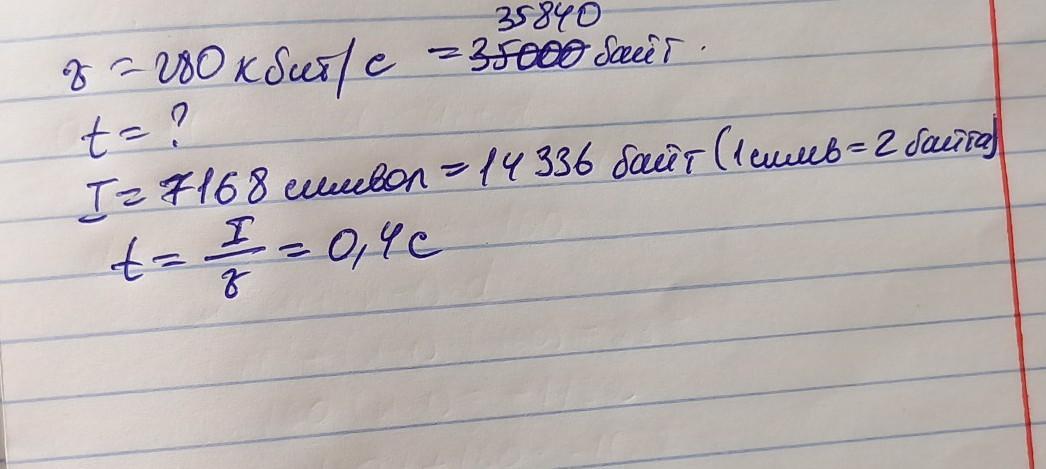 35840
v = 280 кбит/с = 35000 байт.
t = ?
I = 7168 символ = 14 336 байт (1 симв = 2 байта)
t = I/v = 0,4 с